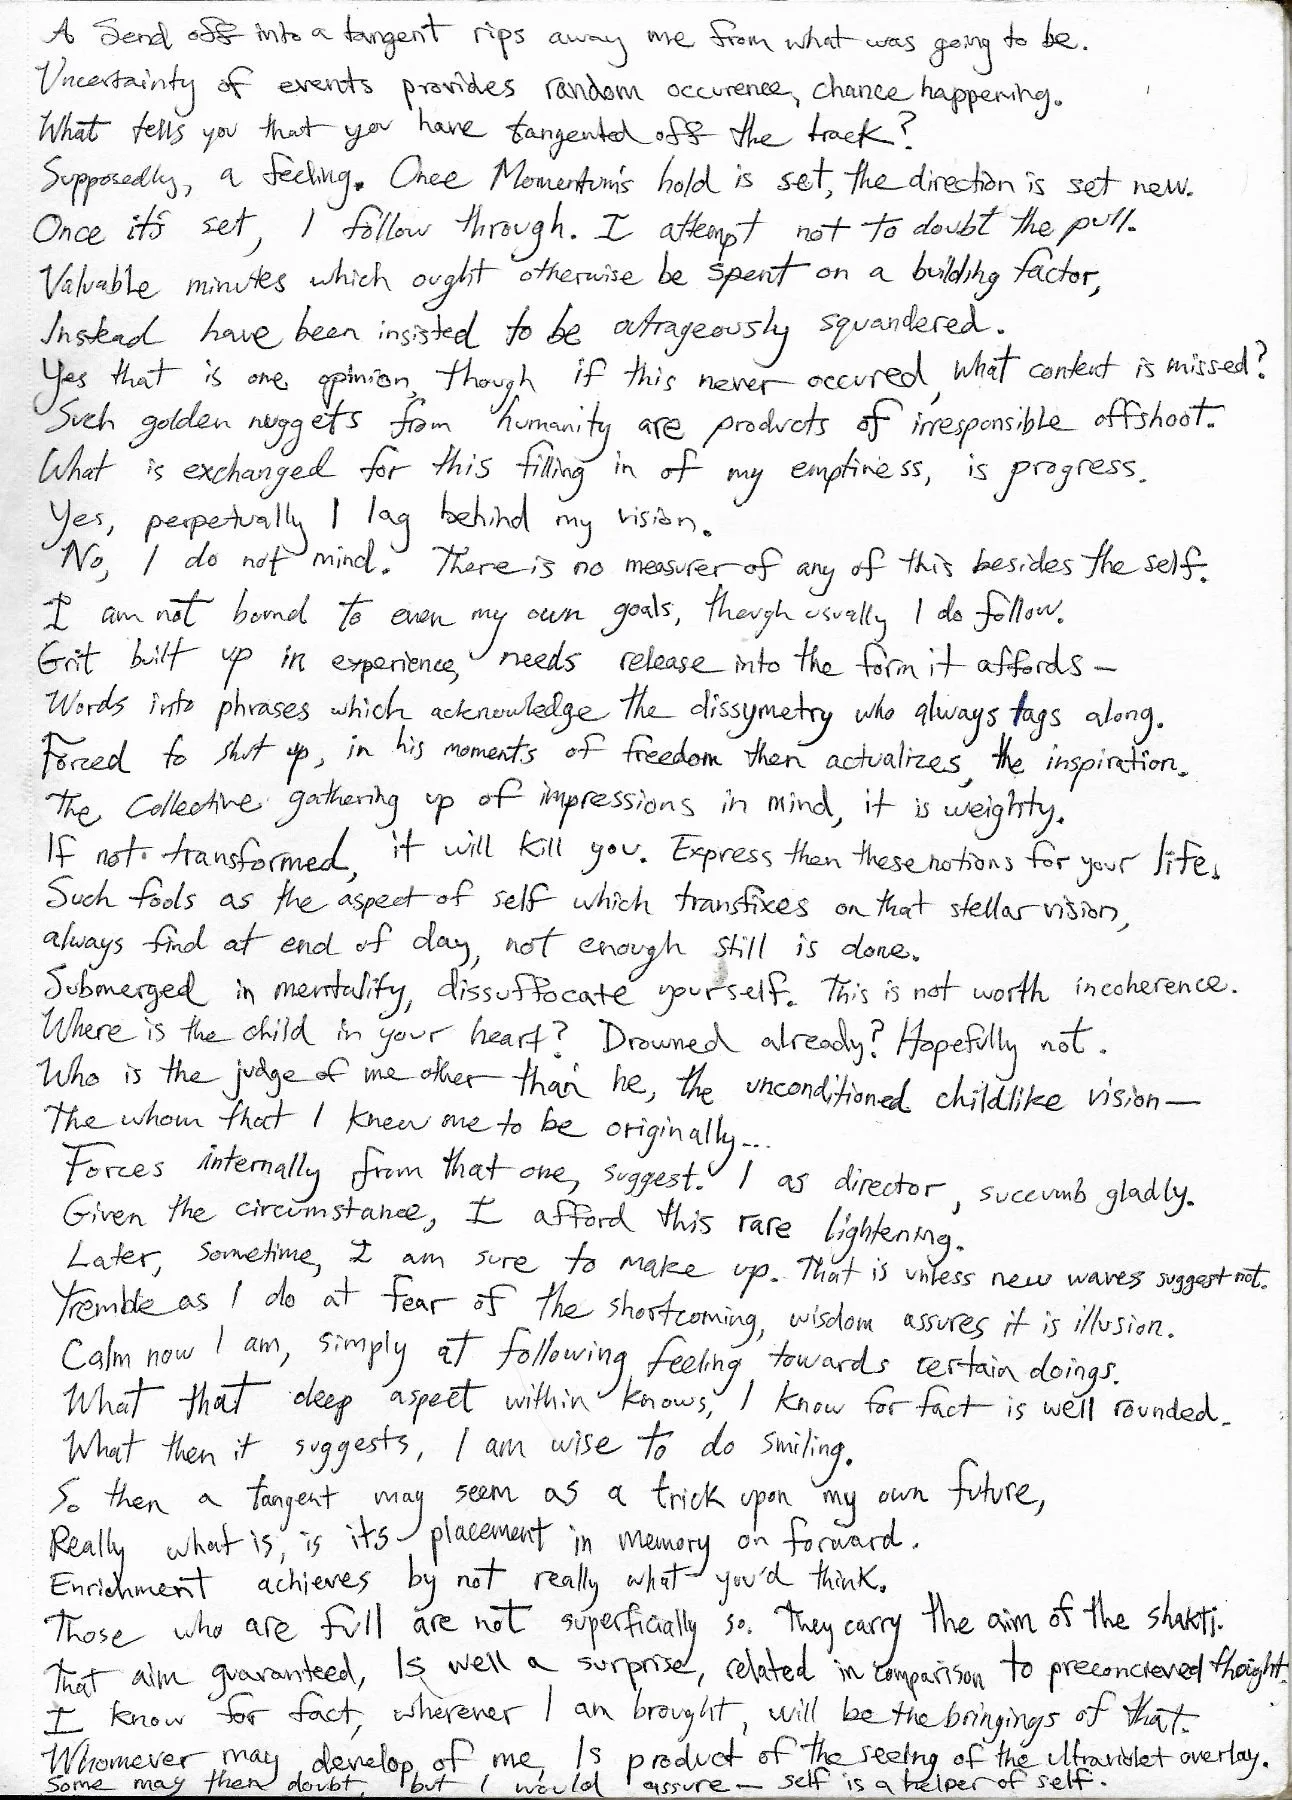 A Send off into a tangent rips away me from what was going to be.
Uncertainty of events provides random occurence, chance happening.
What tells you that you have tangented off the track?
Supposedly, a feeling. Once Momentum's hold is set, the direction is set new.
Once it's set, I follow through. I attempt not to doubt the pull.
Valuable minutes which ought otherwise be spent on a building factor,
Instead have been insisted to be outrageously squandered.
Yes that is one opinion, though if this never occured, what content is missed?
Such golden nuggets from humanity are products of irresponsible offshoot.
What is exchanged for this filling in of my emptiness, is progress.
Yes, perpetually I lag behind my vision.
No, I do not mind. There is no measurer of any of this besides the self.
I am not bound to even my own goals, though usually I do follow.
Grit built up in experience, needs release into the form it affords—
Words into phrases which acknowledge the dissymetry who always tags along.
Forced to shut up, in his moments of freedom then actualizes, the inspiration.
The Collective gathering up of impressions in mind, it is weighty.
If not transformed, it will kill you. Express then these notions for your life.
Such fools as the aspect of self which transfixes on that stellar vision,
always find at end of day, not enough still is done.
Submerged in mentality, dissuffocate yourself. This is not worth incoherence.
Where is the child in your heart? Drowned already? Hopefully not.
Who is the judge of me other than he, the unconditioned childlike vision—
The whom that I knew me to be originally...
Forces internally from that one, suggest. I as director, succumb gladly.
Given the circumstance, I afford this rare lightening.
Later, sometime, I am sure to make up. That is unless new waves suggest not.
Tremble as I do at fear of the shortcoming, wisdom assures it is illusion.
Calm now I am, simply at following feeling towards certain doings.
What that deep aspect within knows, I know for fact is well rounded.
What then it suggests, I am wise to do smiling.
So then a tangent may seem as a trick upon my own future,
Really what is, is its placement in memory on forward.
Enrichment achieves by not really what you'd think.
Those who are full are not superficially so. They carry the aim of the shakti.
That aim guaranteed, Is well a surprise, related in comparison to preconcieved thought.
I know for fact, wherever I am brought, will be the bringings of that.
Whomever may develop of me, Is product of the seeing of the ultraviolet overlay.
Some may then doubt, but I would assure— self is a helper of self.